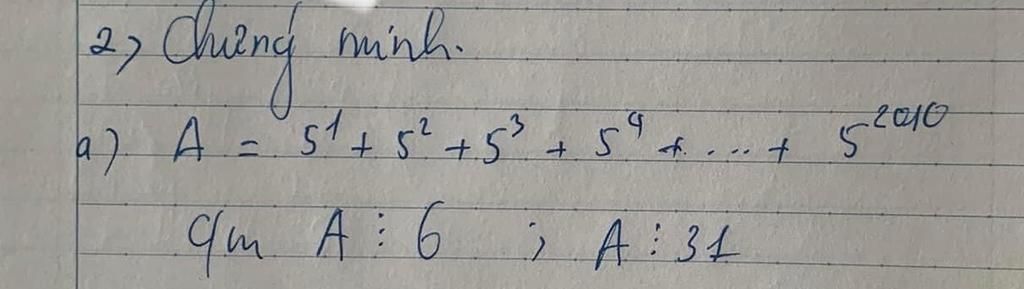 2, Chứng minh.
a) A = 5¹ + 5² + 5³ + 5⁴ + .... + 5²⁰¹⁰
C/m A ⋮ 6 ; A ⋮ 31